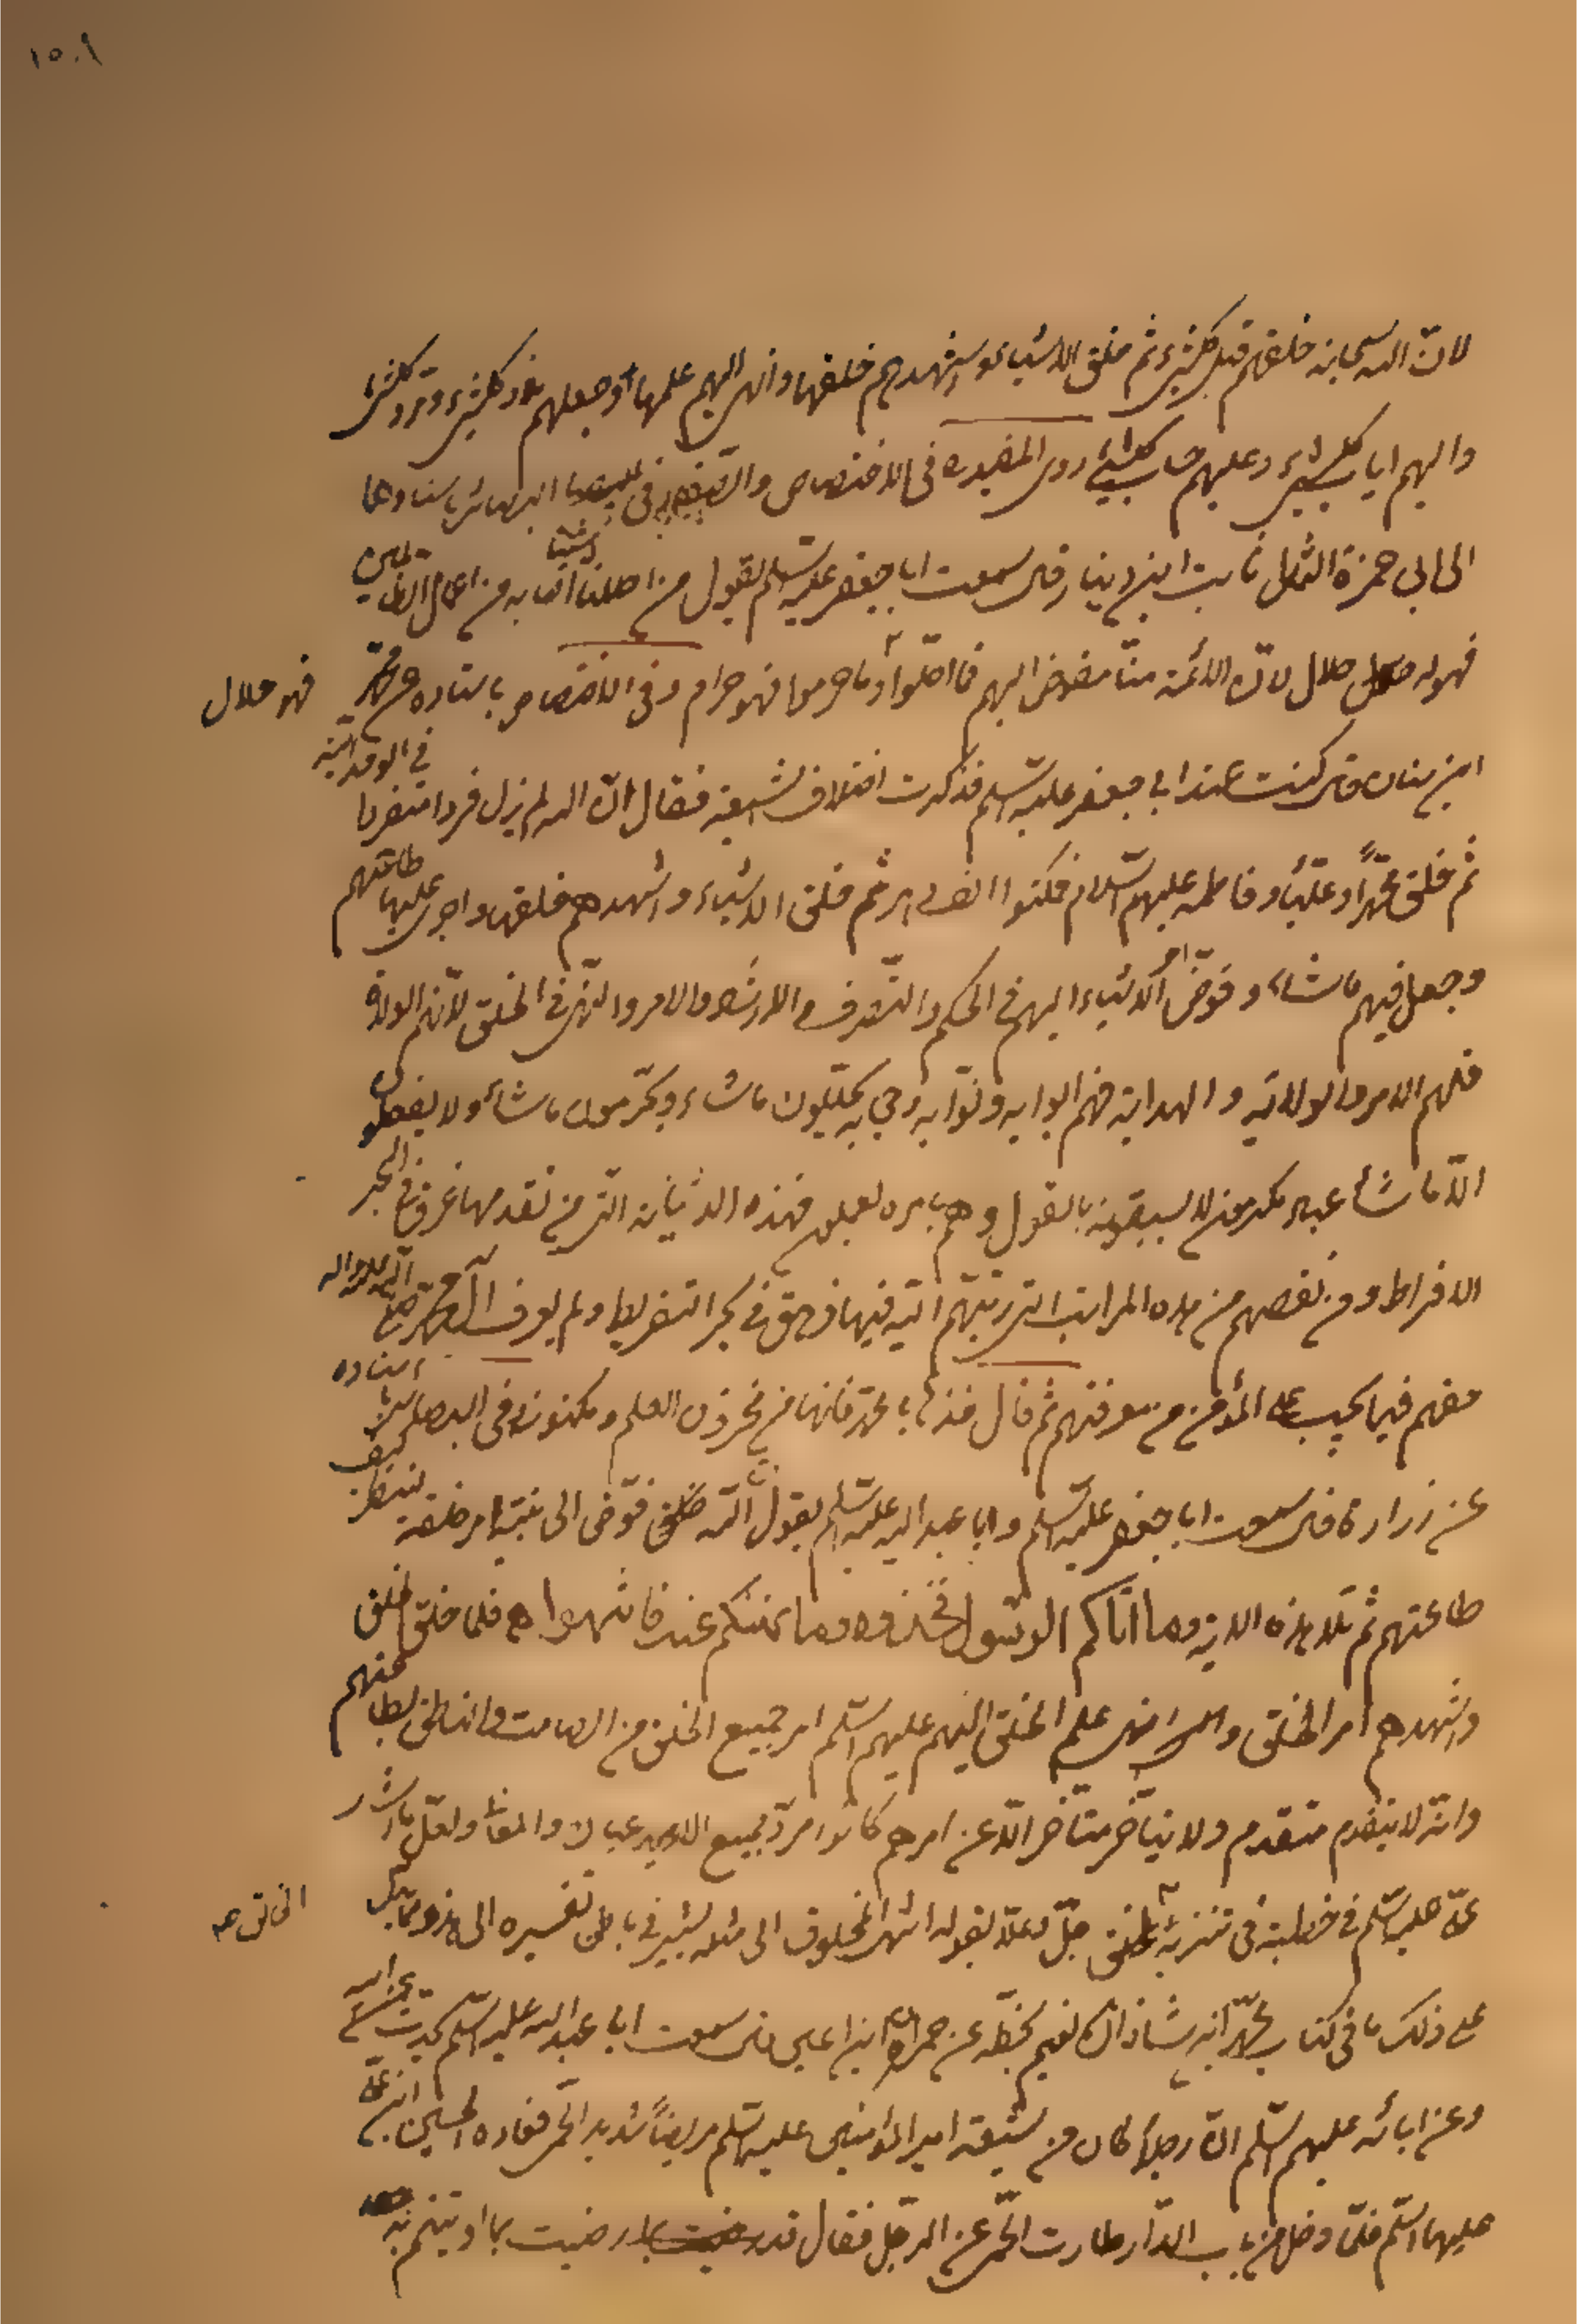 ١٥٠٩
لان الله سبحانه خلقهم قبل كلشئ ثم خلق الاشياء واشهدهم خلقها وانهى اليهم علمها وجعلهم كلشئ كلشئ
واليهم اياب كلشئ وعليهم حساب كلشئ روى المفيد ره فى الاختصاص والصفار فى البصائر باسنادهما
الى ابى حمزة الثمالى ثابت ابن دينار قال سمعت ابا جعفر عليه السلم يقول من احللنا له شيئا اصابه من اعمال الظالمين
فهو له حلال لان الائمة منا مفوض اليهم فما احلوا فهو حلال وما حرموا فهو حرام وفى الاختصاص باسناده عن محمد
ابن سنان قال كنت عند ابى جعفر عليه السلم فذكرت اختلاف الشيعة فقال ان الله لم يزل فردا متفردا فى الوحدانية
ثم خلق محمدا وعليا وفاطمه عليهم السلام فمكثوا الف دهر ثم خلق الاشياء واشهدهم خلقها واجرى عليها طاعتهم
وجعل فيهم ما شاء وفوض امر الاشياء اليهم فى الحكم والتصرف والارشاد والامر والنهى فى الخلق لانهم الولاة
فلهم الامر والولاية والهداية فهم ابوابه ونوابه وحجابه يحللون ما شاء ويحرمون ما شاء ولا يفعلون
الا ما شاء عباد مكرمون لا يسبقونه بالقول وهم بامره يعملون فهذه الديانة التى من تقدمها غرق فى بحر
الافراط ومن نقصهم عن هذه المراتب التى رتبهم الله فيها زهق فى بحر التفريط ولم يوف آل محمد صلى الله عليه واله
حقهم فيما يجب على المؤمن من معرفتهم ثم قال خذها يا محمد فانها من مخزون العلم ومكنونه وفى البصائر باسناده
عن زرارة قال سمعت ابا جعفر عليه السلم وابا عبد الله عليه السلم يقول ان الله فوض الى نبيه امر خلقه لينظر كيف
طاعتهم ثم تلا هذه الاية وما اتاكم الرسول فخذوه وما نهيكم عنه فانتهوا فلما خلق الخلق
واشهدهم امر الخلق وانهى علم الخلق اليهم عليهم السلم امر جميع الخلق من الصامت والناطق بطاعتهم
وانه لا يتقدم متقدم ولا يتاخر متاخر الا عن امرهم ولعل اشار
على عليه السلم فى خطبته فى تنزيه الخالق جل وعلا بقوله انتهى المخلوق الى مثله يشير فى باطن تفسيره الى هذا ومما يدل
على ذلك ما فى كتاب محمد ابن شاذان ابن نعيم بخطه عن حمران ابن اعين قال سمعت ابا عبد الله عليه السلم يحدث عن ابيه
وعن ابائه عليهم السلم ان رجلا كان من شيعة امير المؤمنين عليه السلم مريضا شديد الحمى فعاده الحسين ابن على
عليهما السلم فلما دخل من باب الدار طارت الحمى عن الرجل فقال قد رضيت بما اوتيتم به